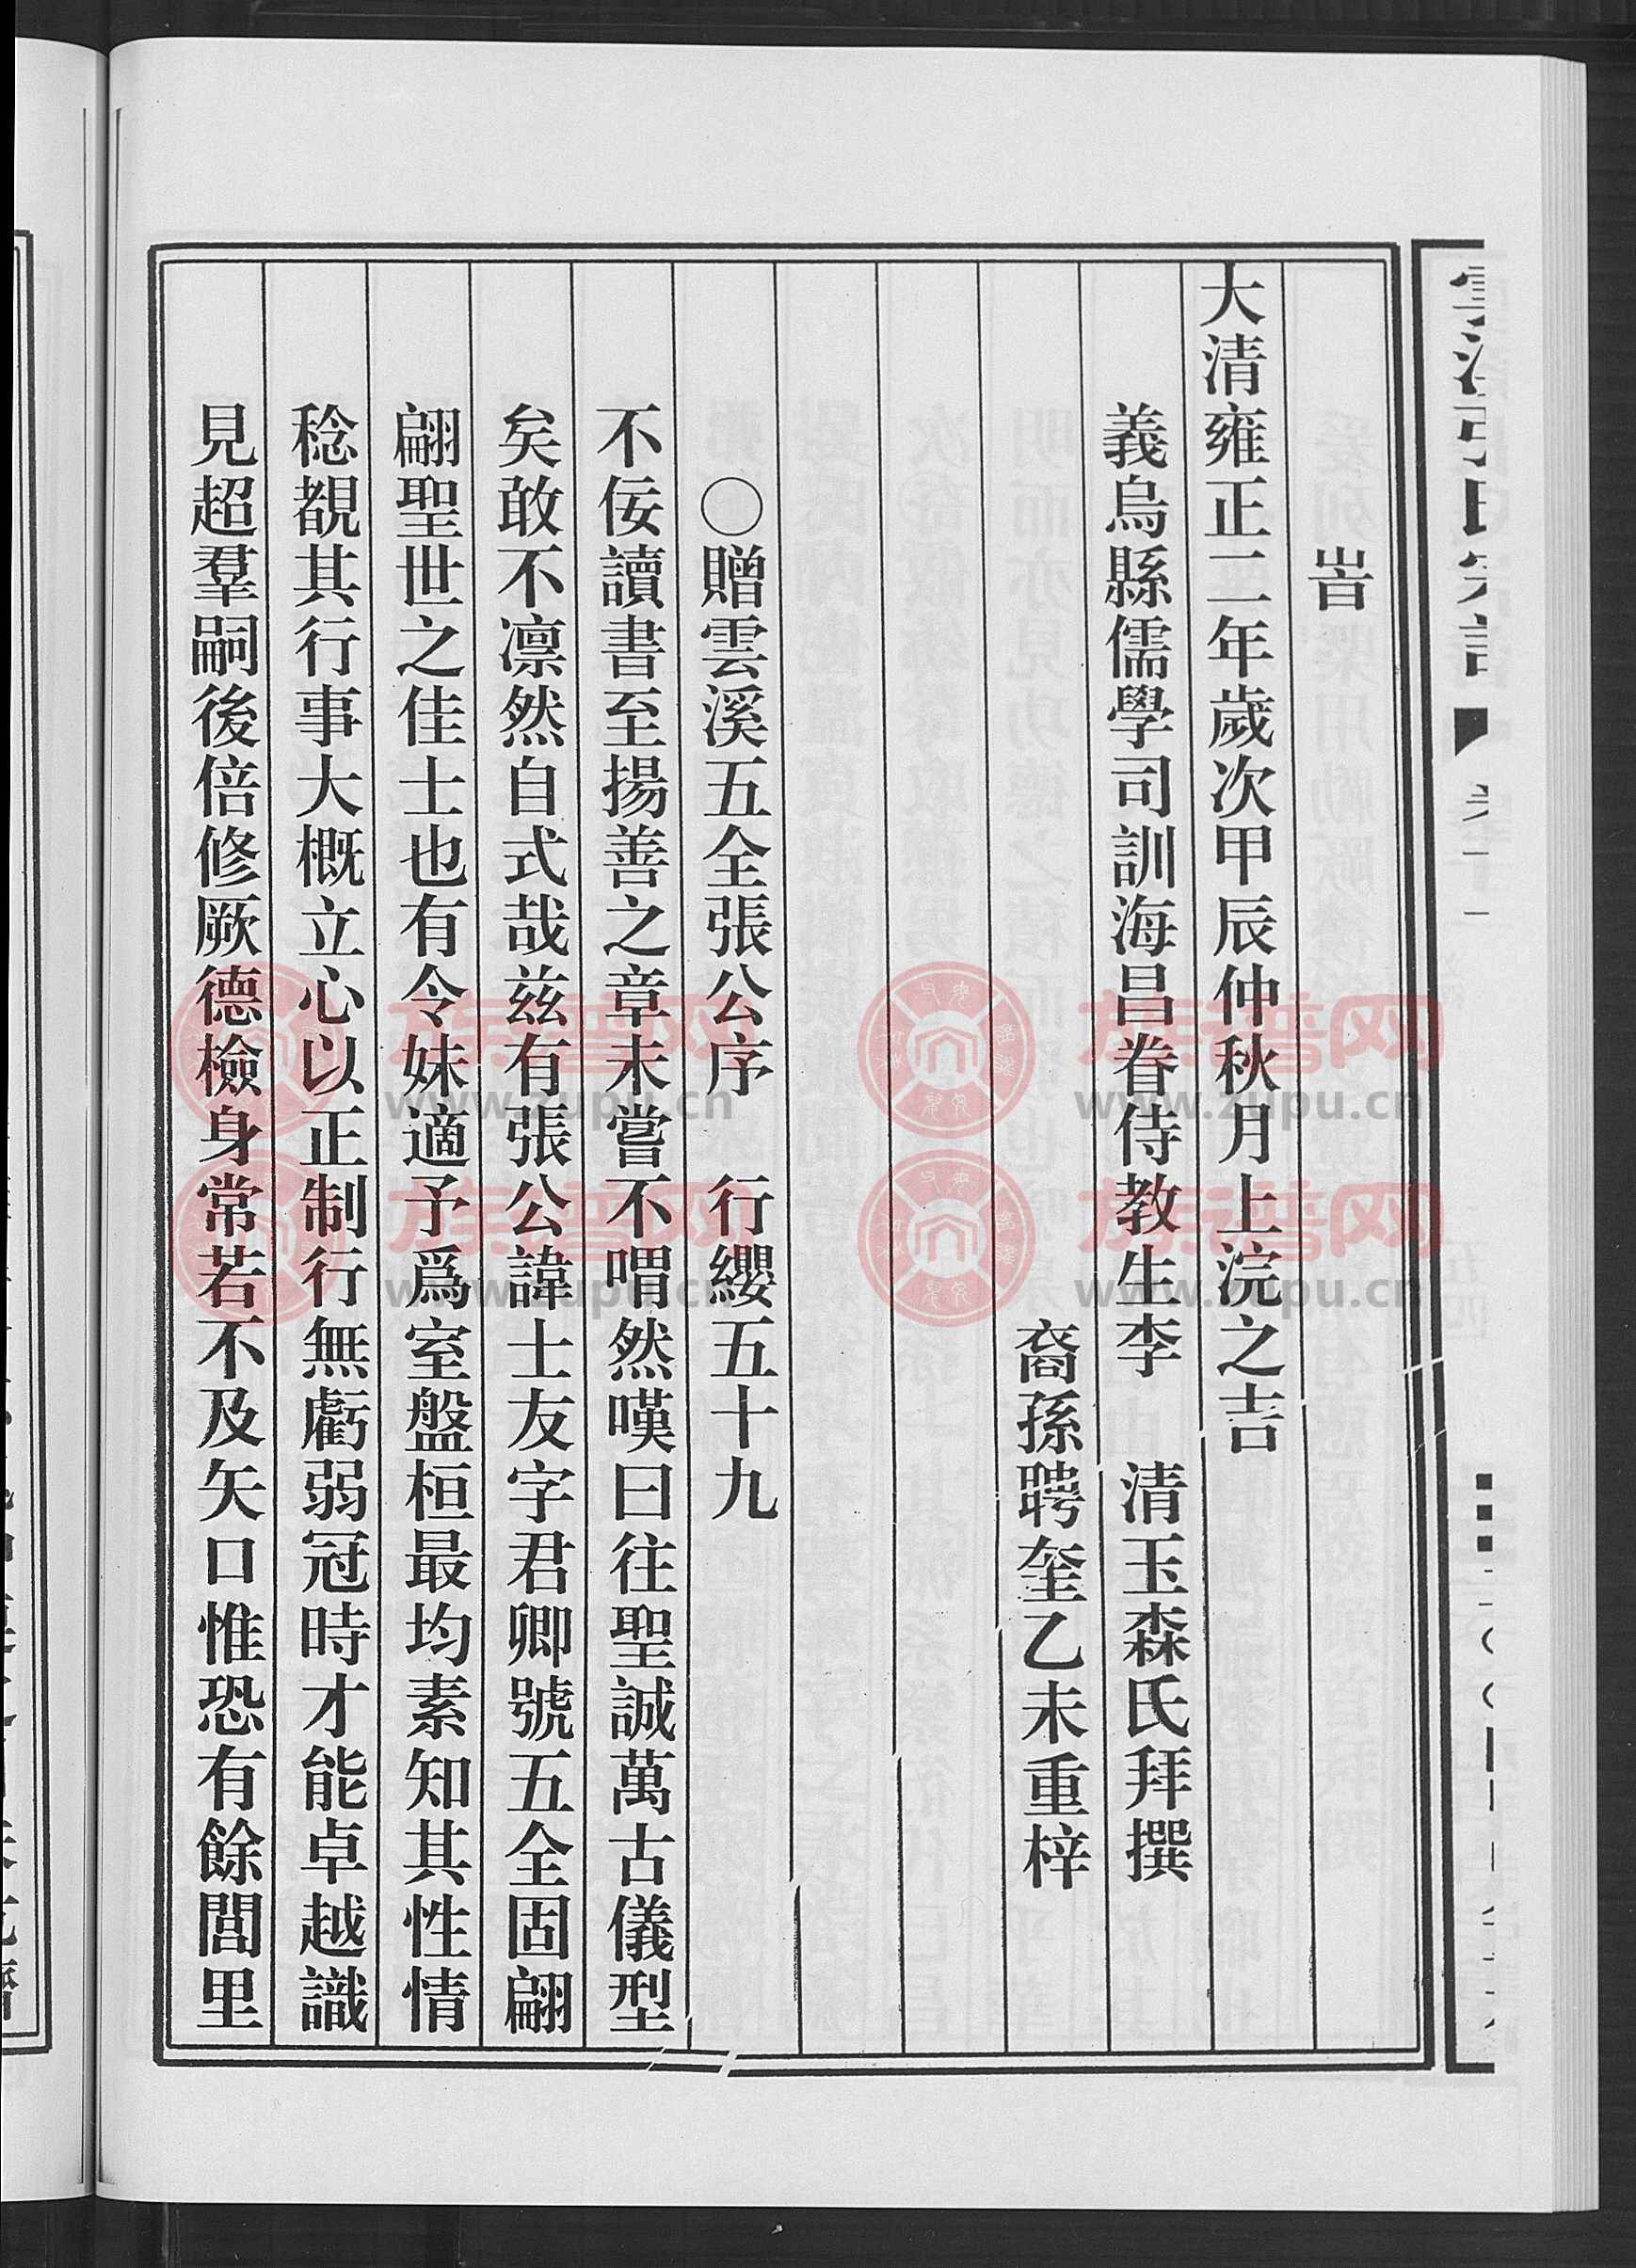 旹
大清雍正二年歲次甲辰仲秋月上浣之吉
義烏縣儒學司訓海昌眷侍教生李　清玉森氏拜撰
裔孫聘奎乙未重梓
〇贈雲溪五全張公序　行纓五十九
不佞讀書至揚善之章未嘗不喟然嘆曰往聖誠萬古儀型
矣敢不凛然自式哉茲有張公諱士友字君卿號五全固翩
翩聖世之佳士也有令妹適予爲室盤桓最均素知其性情
稔覩其行事大概立心以正制行無虧弱冠時才能卓越識
見超羣嗣後倍修厥德檢身常若不及矢口惟恐有餘閭里
族谱网
www.zupu.cn
族谱网
www.zupu.cn
族谱网
www.zupu.cn
族谱网
www.zupu.cn